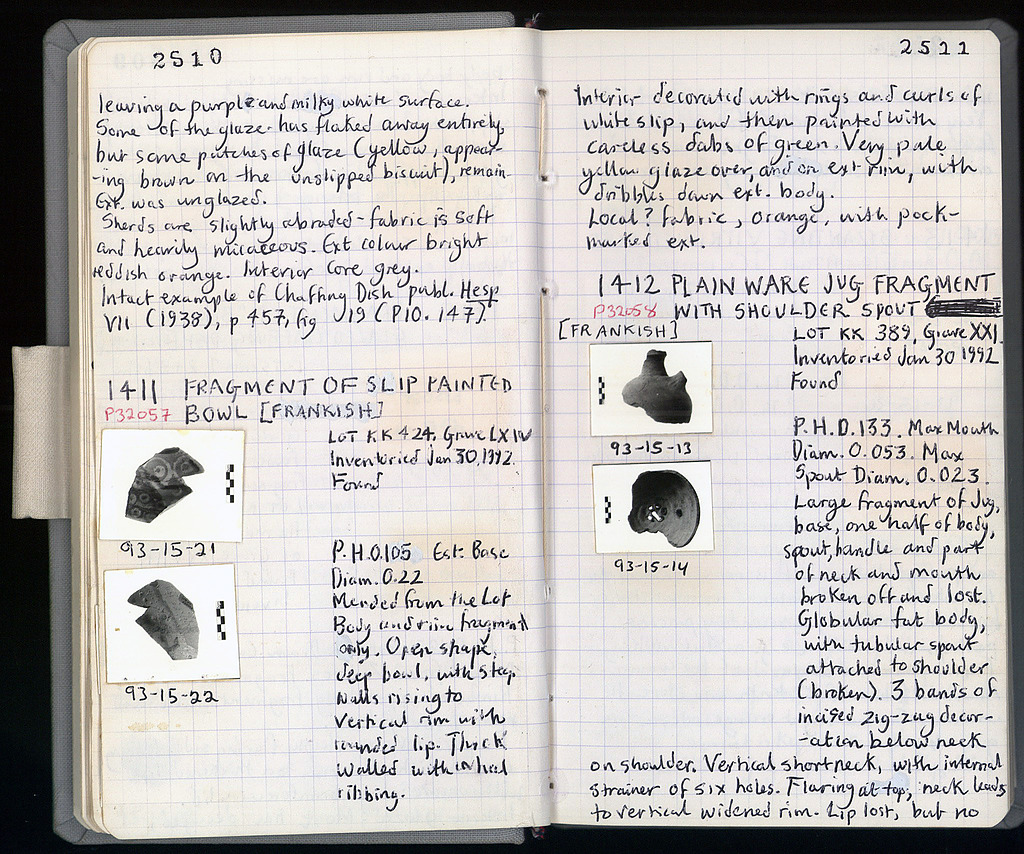 2510
leaving a purple and milky white surface.
Some of the glaze has flaked away entirely,
but some patches of glaze (yellow, appear-
-ing brown on the unslipped biscuit), remain.
Ext. was unglazed.
Sherds are slightly abraded - fabric is soft
and heavily micaceous. Ext colour bright
reddish orange. Interior core grey.
Intact example of Chaffing Dish publ. Hesp
VII (1938), p 457, fig 19 (P10.147).
1411 FRAGMENT OF SLIP PAINTED
P32057 BOWL [FRANKISH]
LOT KK 424, Grave LXIV
Inventoried Jan 30, 1992.
Found
93-15-21
P.H.0.105 Est. Base
Diam. 0.22
Mended from the Lot
Body and rim fragment
only. Open shape,
deep bowl, with steep
walls rising to
vertical rim with
rounded lip. Thick
walled with wheel
ribbing.
93-15-22
2511
Interior decorated with rings and curls of
white slip, and then painted with
careless dabs of green. Very pale
yellow glaze over, and on ext rim, with
dribbles down ext. body.
Local? fabric, orange, with pock-
marked ext.
1412 PLAIN WARE JUG FRAGMENT
P32058 WITH SHOULDER SPOUT
[FRANKISH]
LOT KK 389, Grave XXI.
Inventoried Jan 30 1992
Found
93-15-13
P.H.0.133. Max Mouth
Diam. 0.053. Max
Spout Diam. 0.023.
Large fragment of Jug,
base, one half of body,
spout, handle and part
of neck and mouth
broken off and lost.
Globular fat body,
with tubular spout
attached to shoulder
(broken). 3 bands of
incised zig-zag decor-
-ation below neck
on shoulder. Vertical short neck, with internal
strainer of six holes. Flaring at top, neck leads
to vertical widened rim. Lip lost, but no
93-15-14